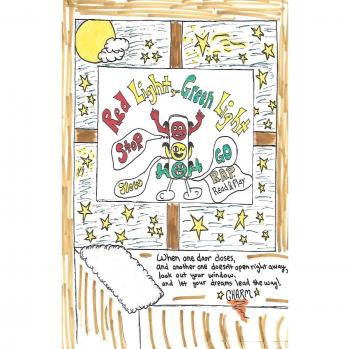 Red Light, Green Light
STOP
GO
Slow
R.A.P.
Read & Play
When one door closes,
and another one doesn't open right away,
look out your window,
and let your dreams lead the way!
CHARM